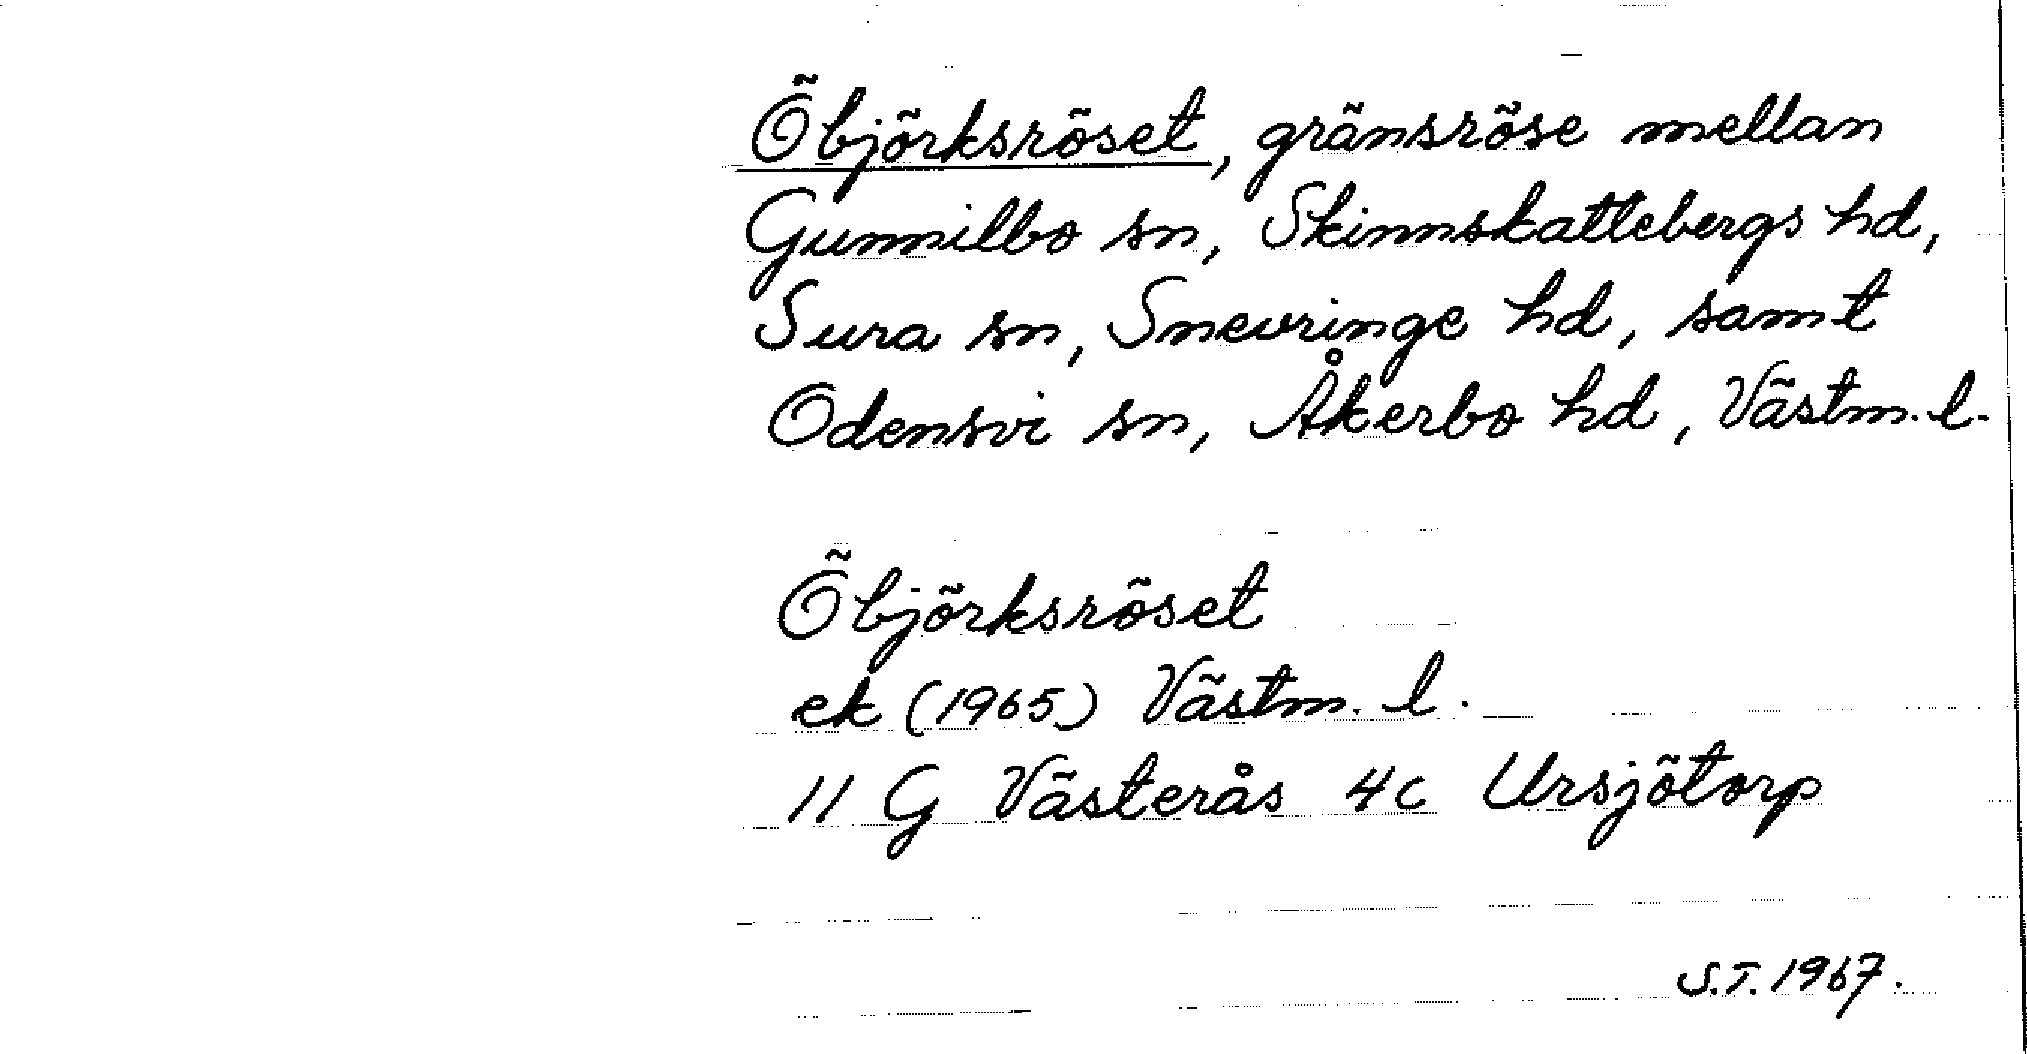 Öbjörksröset, gränsröse mellan
Gunnilbo sn, Skinnskattebergs hd,
Sura sn, Snevringe hd, samt
Odensvi sn, Åkerbo hd, Västm. l.
Öbjörksröset
ek (1965) Västm. l.
11 G Västerås 4c Ursjötorp
S.T. 1967.